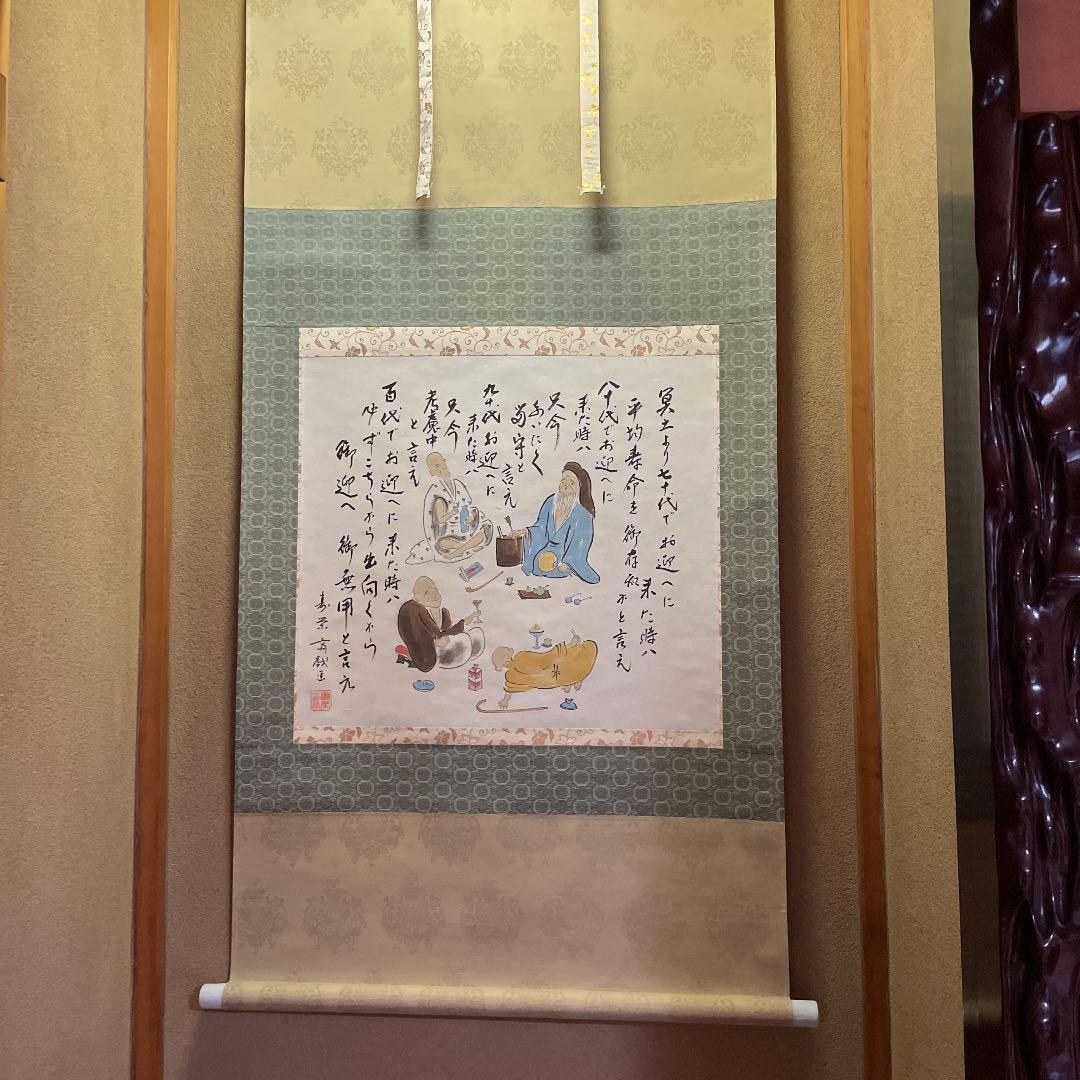 冥土より七十代でお迎へに
来た時ハ
平均寿命を御存知かと言え
八十代でお迎へに
来た時ハ
只今
あいにく
留守と
言え
九十代お迎へに
来た時ハ
只今
考慮中
と言え
百代でお迎へに来た時ハ
必ずこちらから出向くから
御迎へ御無用と言え